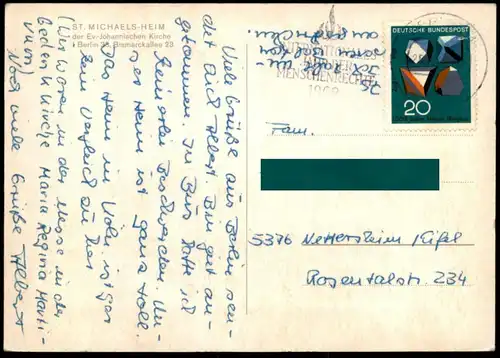 ST. MICHAELS-HEIM
der Ev-Johannischen Kirche
1 Berlin 33, Bismarckallee 23
Viele Grüße aus Berlin sen-
det Euch Albert. Bin gut an-
gekommen. Im Bus hatte ich
keinerlei Beschwerden. Un-
ser Heim ist ganz toll.
Das Heim in Köln ist gar
kein Vergleich zu hier
(Wir waren in der Messe in der
Gedenkkirche Maria Regina Marti-
rum)
Noch viele Grüße Albert
MENSCHENRECHTE
1968
DEUTSCHE BUNDESPOST
20
Fam.
5376 Nettersheim Eifel
Rosentalstr. 234